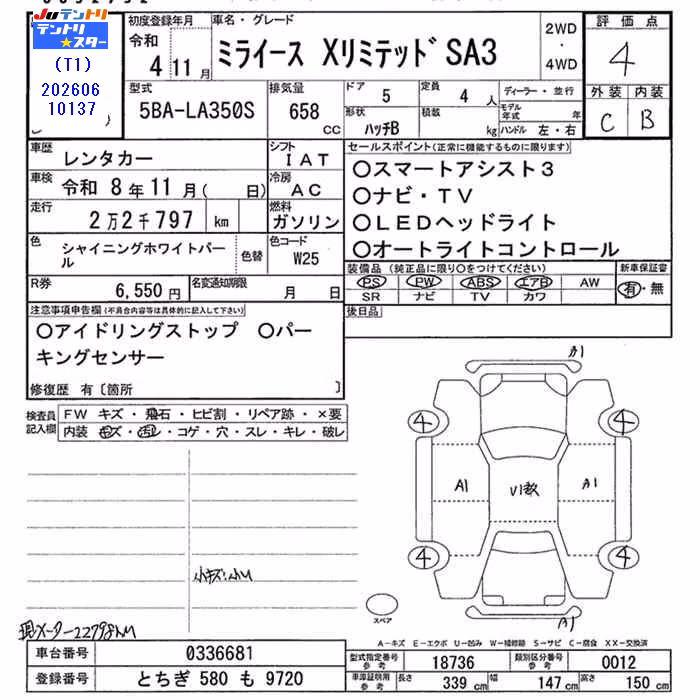 JUテントリ
テントリ
スター
(T1)
202606
10137
初度登録年月
令和
4 11月
車名・グレード
ミライース Xリミテッド SA3
2WD
・
4WD
評価点
4
外装 内装
C B
型式
5BA-LA350S
排気量
658 CC
ドア 5
定員 4 人
ディーラー・並行
形状 ハッチB
積載 kg
モデル年式 年式
ハンドル 左・右
車歴 レンタカー
シフト IAT
車検 令和 8年11月( 日)
冷房 AC
走行 2万2千797 km
燃料 ガソリン
色 シャイニングホワイトパール
色替
色コード W25
R券 6,550円
名変通知期限 月 日
セールスポイント(正常に機能するものに限ります)
〇スマートアシスト3
〇ナビ・TV
〇LEDヘッドライト
〇オートライトコントロール
装備品(純正品に限り〇をつけてください)
新車保証書
PS PW ABS エアB AW
有・無
SR ナビ TV カワ
後日品
注意事項申告欄(不具合内容等は具体的に記入して下さい)
〇アイドリングストップ 〇パー
キングセンサー
修復歴 有〔箇所 〕
検査員記入欄
FW キズ・飛石・ヒビ割・リペア跡・×要
内装 キズ・汚レ・コゲ・穴・スレ・キレ・破レ
カ1
4 4
A1 カ1
4 4
A1
スペア
小キズ・小U
現メーター22798KM
A-キズ E-エクボ U-凹み W-補修跡 S-サビ C-腐食 XX-交換済
車台番号 0336681
登録番号 とちぎ 580 も 9720
型式指定番号 参考 18736
類別区分番号 参考 0012
車庫証明用 参考
長さ 339 cm 幅 147 cm 高さ 150 cm